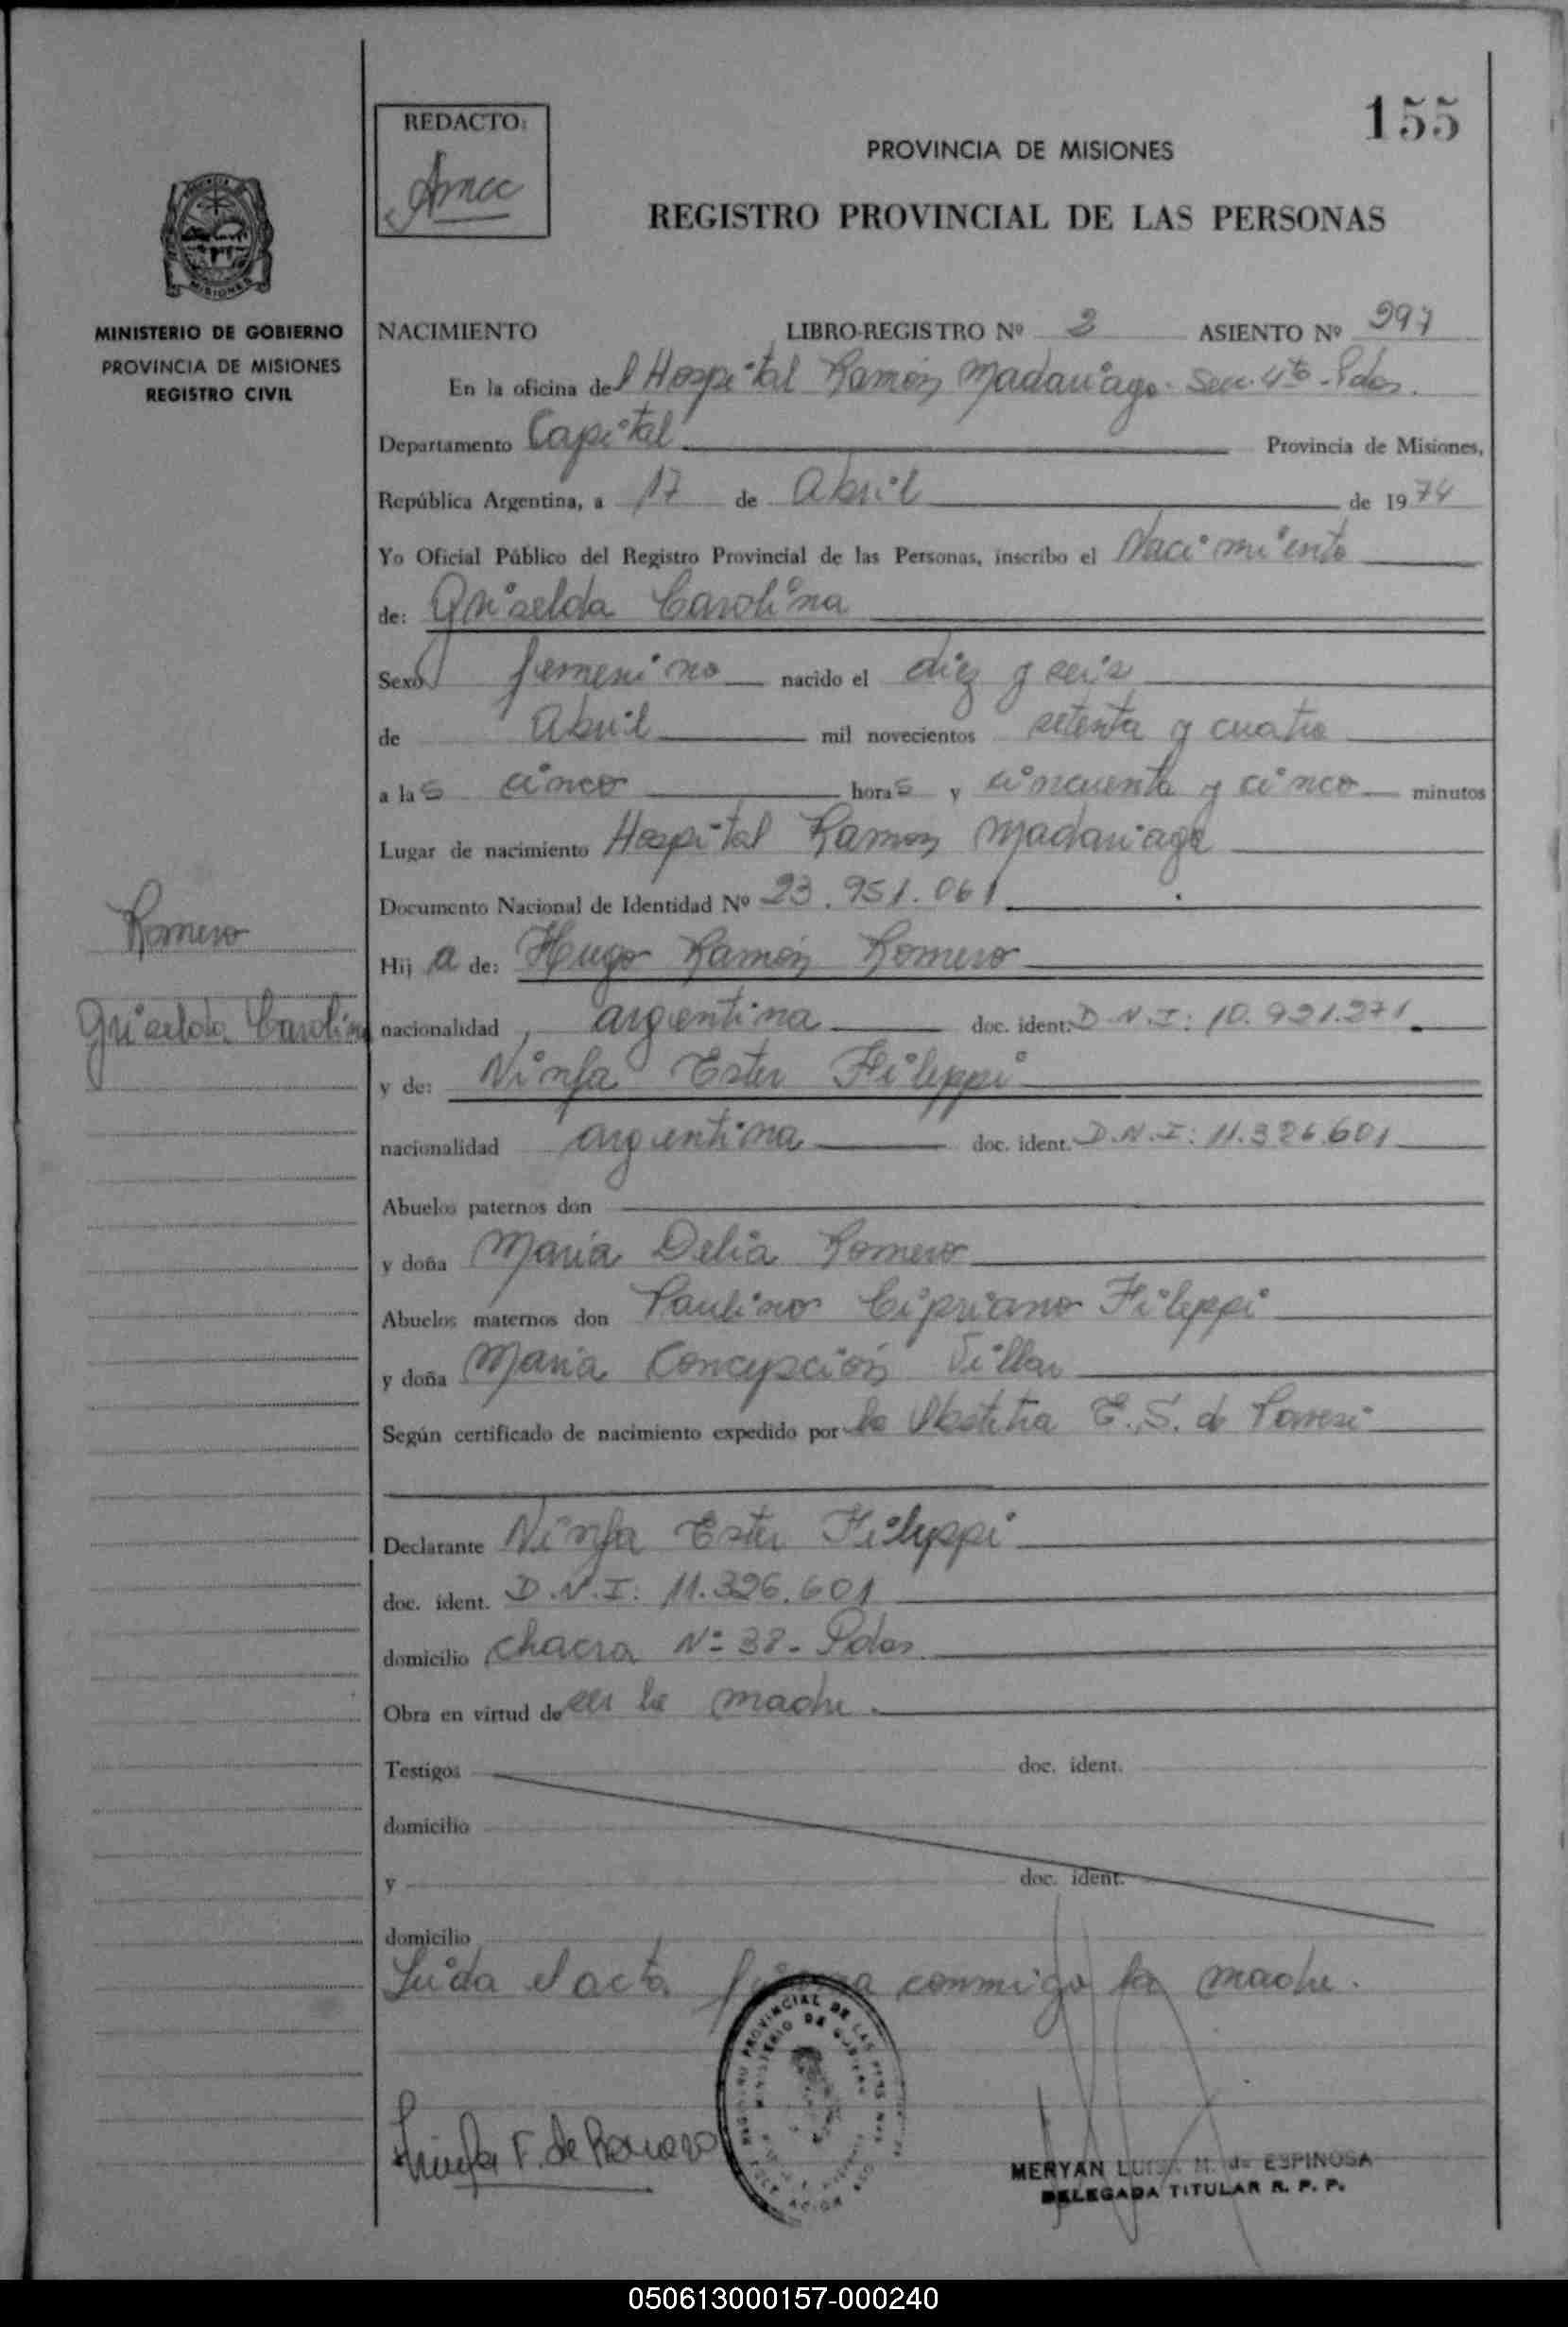 155
REDACTO:
PROVINCIA DE MISIONES
REGISTRO PROVINCIAL DE LAS PERSONAS
MISIONES
MINISTERIO DE GOBIERNO
PROVINCIA DE MISIONES
REGISTRO CIVIL
NACIMIENTO LIBRO-REGISTRO Nº 2 ASIENTO Nº 297
En la oficina del Hospital Ramón Madariaga. Secc. 4ta - Pdas.
Departamento Capital Provincia de Misiones,
República Argentina, a 17 de Abril de 1974
Yo Oficial Público del Registro Provincial de las Personas, inscribo el Nacimiento
de: Griselda Carolina
Sexo femenino nacido el diez y seis
de Abril mil novecientos setenta y cuatro
a las cinco horas y cincuenta y cinco minutos
Lugar de nacimiento Hospital Ramon Madariaga
Documento Nacional de Identidad Nº 23.951.061
Romero
Hij a de: Hugo Ramón Romero
Griselda Carolina
nacionalidad argentina doc. ident. D.N.I: 10.921.271
y de: Ninfa Ester Filippi
nacionalidad argentina doc. ident. D.N.I: 11.326.601
Abuelos paternos don
y doña María Delia Romero
Abuelos maternos don Paulino Cipriano Filippi
y doña María Concepción Villar
Según certificado de nacimiento expedido por la Obstetra E. S. de
Declarante Ninfa Ester Filippi
doc. ident. D.N.I: 11.326.601
domicilio chacra Nº 38 - Pdas.
Obra en virtud de ser la madre.
Testigos doc. ident.
domicilio
y doc. ident.
domicilio
Leída el acta firma conmigo la madre.
Ninfa F. de Romero
MERYAN LUISA M. de ESPINOSA
DELEGADA TITULAR R. P. P.
050613000157-000240